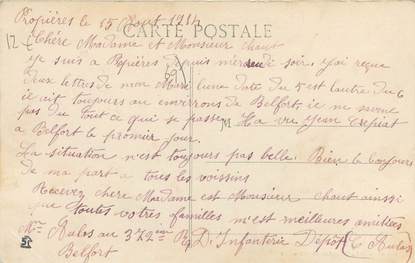 Propières le 15 Aout 1914
CARTE POSTALE
Chére Madame et Monsieur chaut
je suis a Popières depuis mercredi soir. J'ai reçue
deux lettres de mon Mari l'une date du 5 est l'autre du 6
il ait toujours au environs de Belfort. il me
pas du tout ce qui se passe. Il a vu Jean
a Belfort le premier jour.
La situation n'est toujours pas belle. Bien le bonjours
de ma part a tous les voissins
Recevez chere Madame est Monsieur chaut ainssi
que toutes votres familles m'est meilleures amitiées
Mr Aulos au 372me R. D'Infanterie Dépot
Belfort